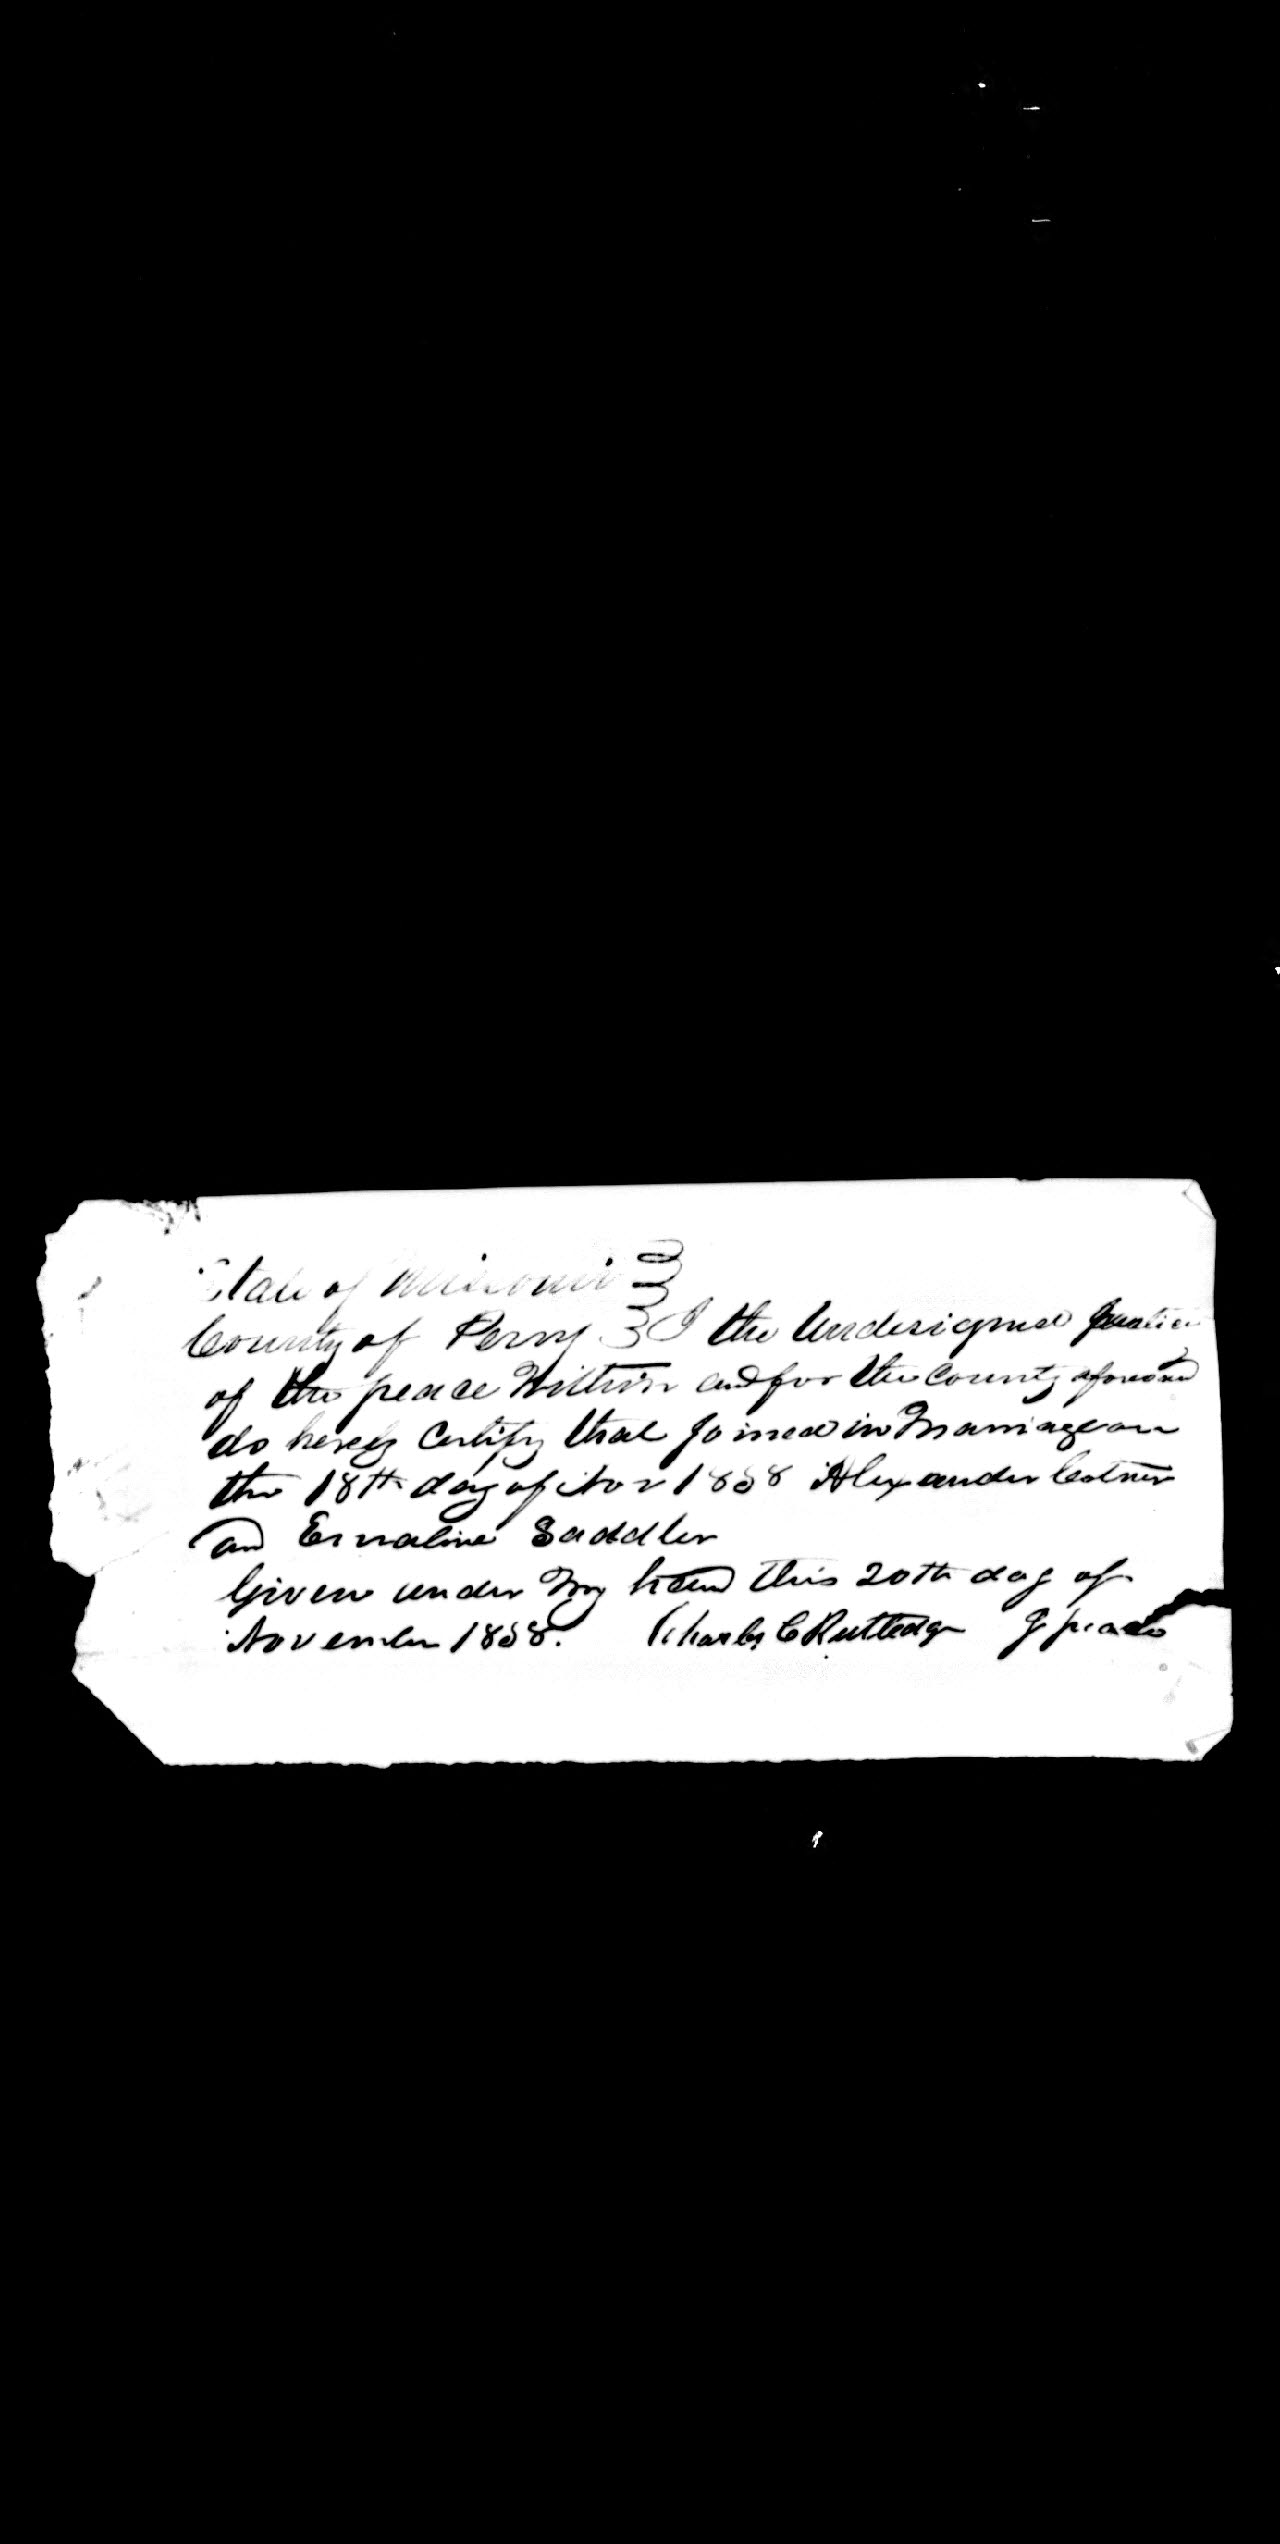 State of Missouri
County of Perry I the Undersigned Justice
of the peace Within and for the County aforesaid
do hereby Certify that Joined in Marriage on
the 18th day of Nov 1858 Alexander Cotner
and Emaline Saddler
Given under My hand this 20th day of
November 1858. Charles C Rutledge J peace